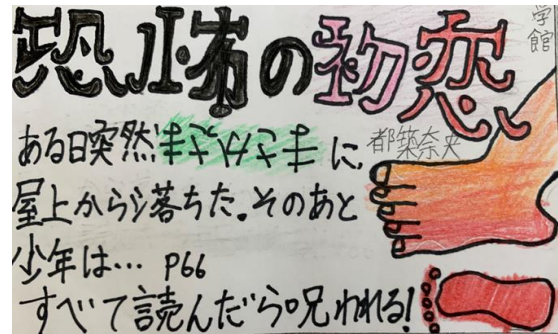 学
館
恐怖の初恋
都築奈央
ある日突然 に、
屋上から落ちた。そのあと
少年は… P66
すべて読んだら呪われる!